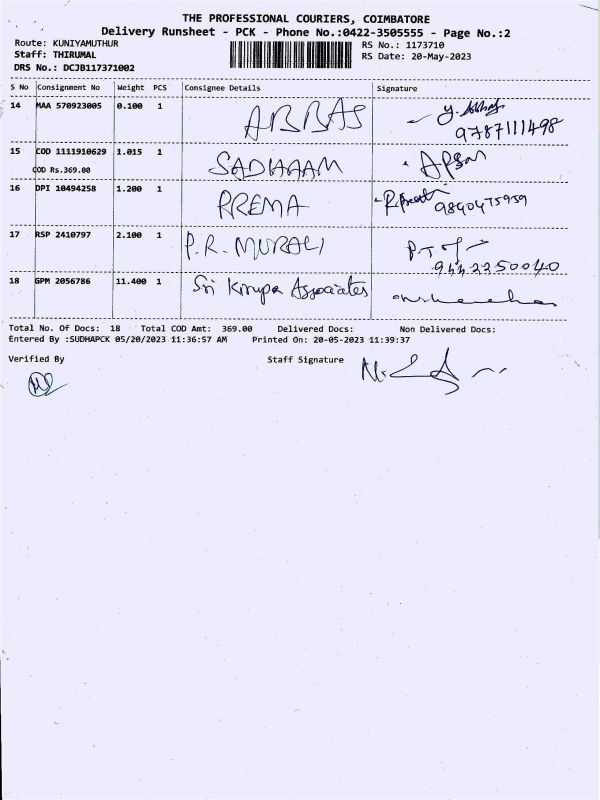 THE PROFESSIONAL COURIERS, COIMBATORE
Delivery Runsheet - PCK - Phone No.:0422-3505555 - Page No.:2
Route: KUNIYAMUTHUR
RS No.: 1173710
Staff: THIRUMAL
RS Date: 20-May-2023
DRS No.: DCJB117371002
S No Consignment No Weight PCS Consignee Details Signature
14 MAA 570923005 0.100 1 ABBAS
9787111498
15 COD 1111910629 1.015 1 SADHAAM
COD Rs.369.00
16 DPI 10494258 1.200 1 PREMA 9840475959
17 RSP 2410797 2.100 1 P.R. MURALI
9442250040
18 GPM 2056786 11.400 1 Sri Kirupa Associates
Total No. Of Docs: 18 Total COD Amt: 369.00 Delivered Docs: Non Delivered Docs:
Entered By :SUDHAPCK 05/20/2023 11:36:57 AM Printed On: 20-05-2023 11:39:37
Verified By Staff Signature